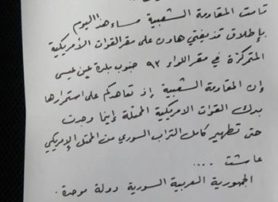 قامت المقاومة الشعبية مساء هذا اليوم
بإطلاق قذيفتي هاون على مقر القوات الأمريكية
المتمركزة في مقر اللواء ٩٣ جنوب بلدة عين عيسى
إن المقاومة الشعبية إذ تعاهدكم على استمرارها
بدك القوات الامريكية المحتلة إينما وجدت
حتى تطهير كامل التراب السوري من المحتل الإمريكي
عاشت ....
الجمهورية العربية السورية دولة موحدة .